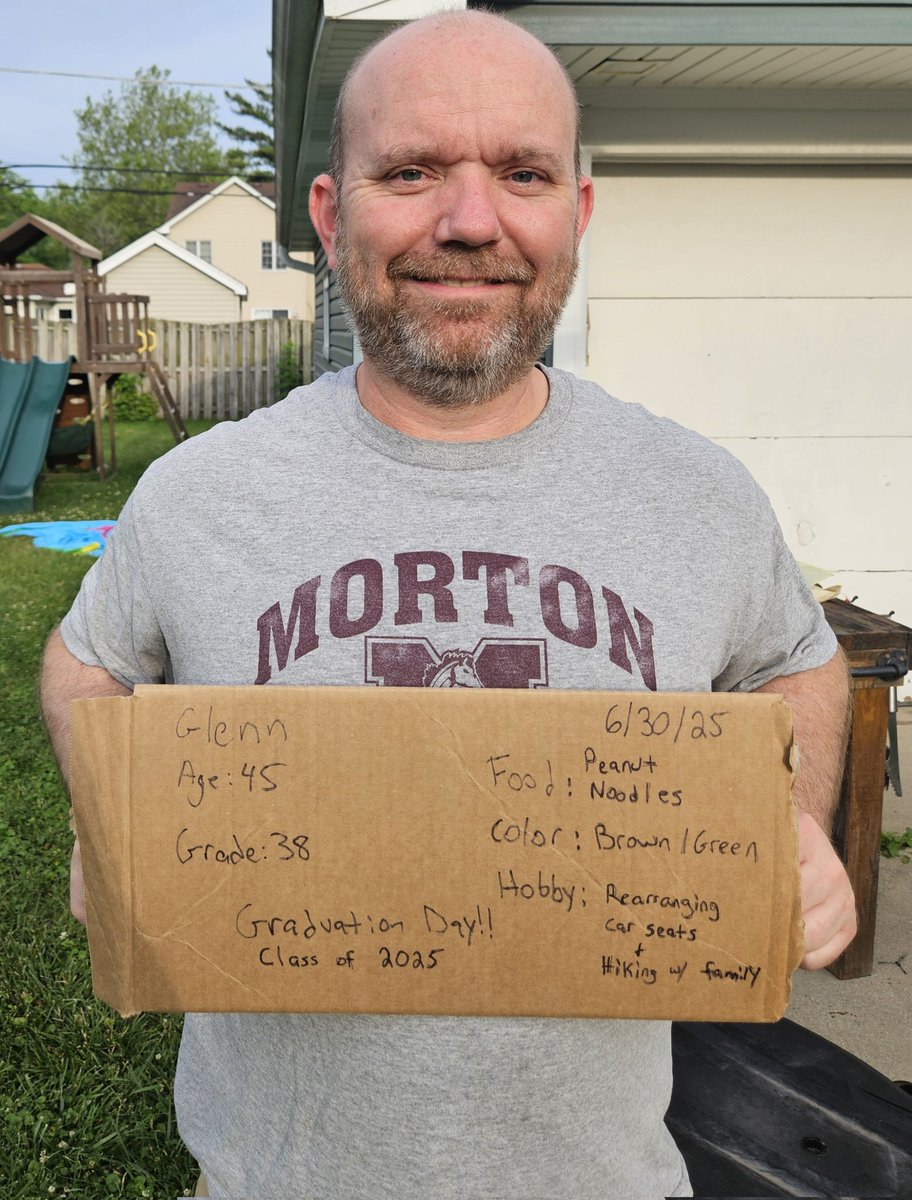 MORTON
M
Glenn
Age: 45
Grade: 38
Graduation Day!!
Class of 2025
6/30/25
Food: Peanut
Noodles
Color: Brown/Green
Hobby: Rearranging
car seats
+
Hiking w/ family